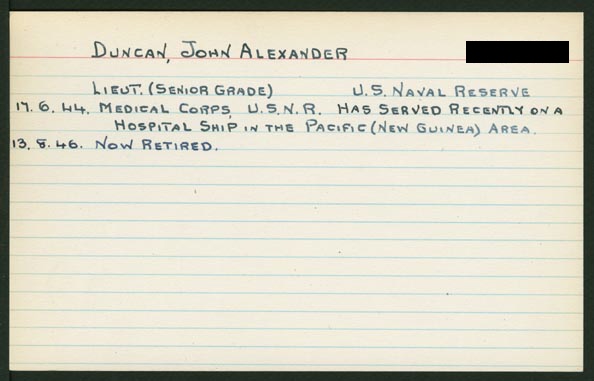 DUNCAN, JOHN ALEXANDER
LIEUT. (SENIOR GRADE) U.S. NAVAL RESERVE
17. 6. 44. MEDICAL CORPS, U.S.N.R. HAS SERVED RECENTLY ON A
HOSPITAL SHIP IN THE PACIFIC (NEW GUINEA) AREA.
13. 8. 46. NOW RETIRED.